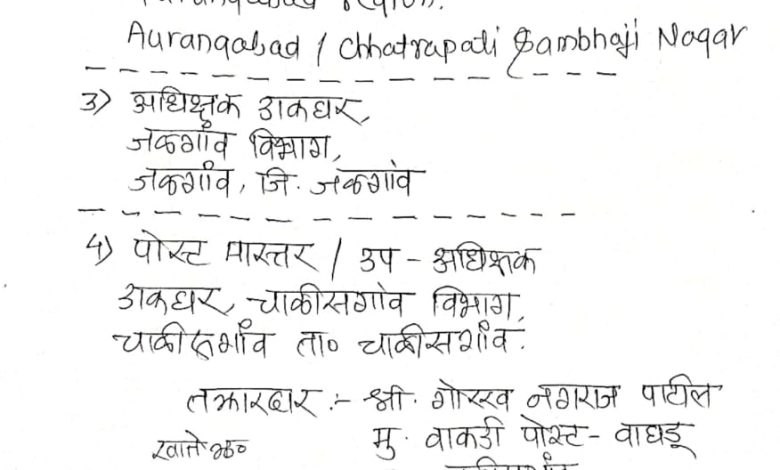 Aurangabad / Chhatrapati Sambhaji Nagar
3) अधिक्षक डाकघर,
जळगाँव विभाग,
जळगाँव, जि. जळगांव
4) पोस्ट मास्तर / उप - अधिक्षक
डाकघर, चाळीसगांव विभाग,
चाळीसगाँव ता० चाळीसगाँव.
तक्रारदार :- श्री. गोरख नगराज पाटील
खाते क्र० मु. वाकडी पोस्ट - वाघडू